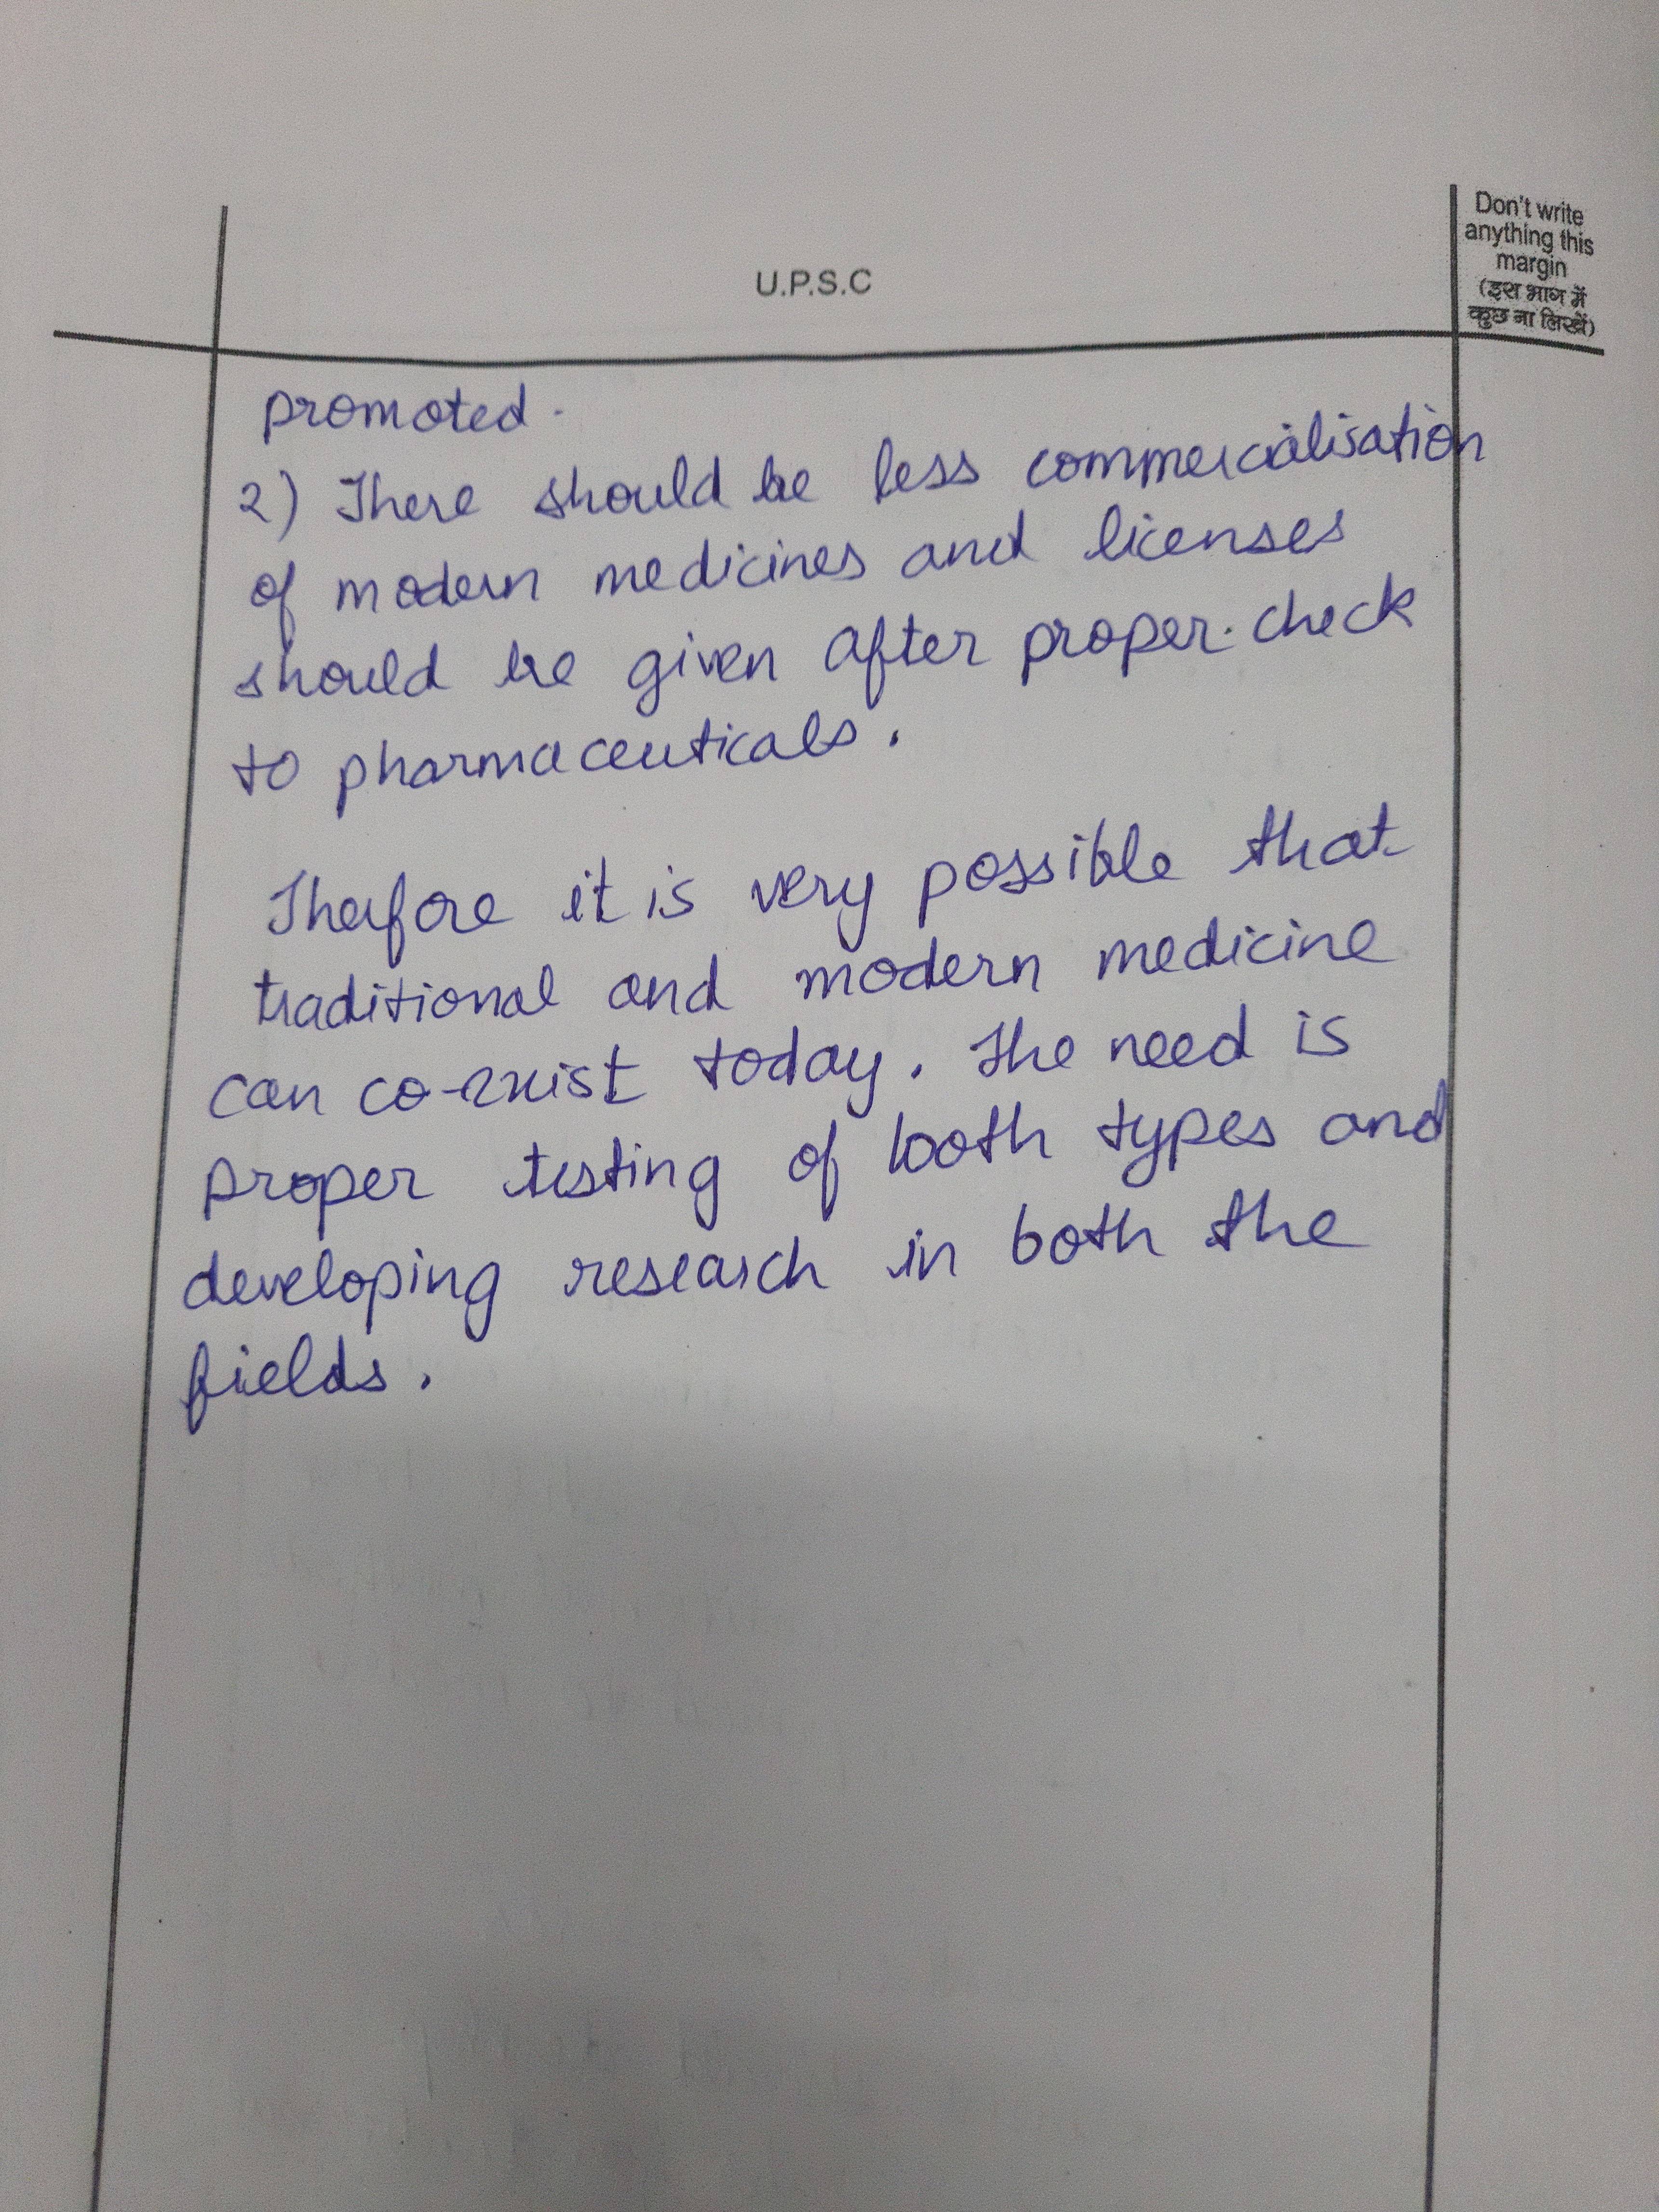 Don't write
anything this
margin
(इस भाग में
कुछ ना लिखें)
U.P.S.C
promoted.
2) There should be less commercialisation
of modern medicines and licenses
should be given after proper check
to pharmaceuticals.
Therfore it is very possible that
traditional and modern medicine
can co-exist today. The need is
proper testing of both types and
developing research in both the
fields.